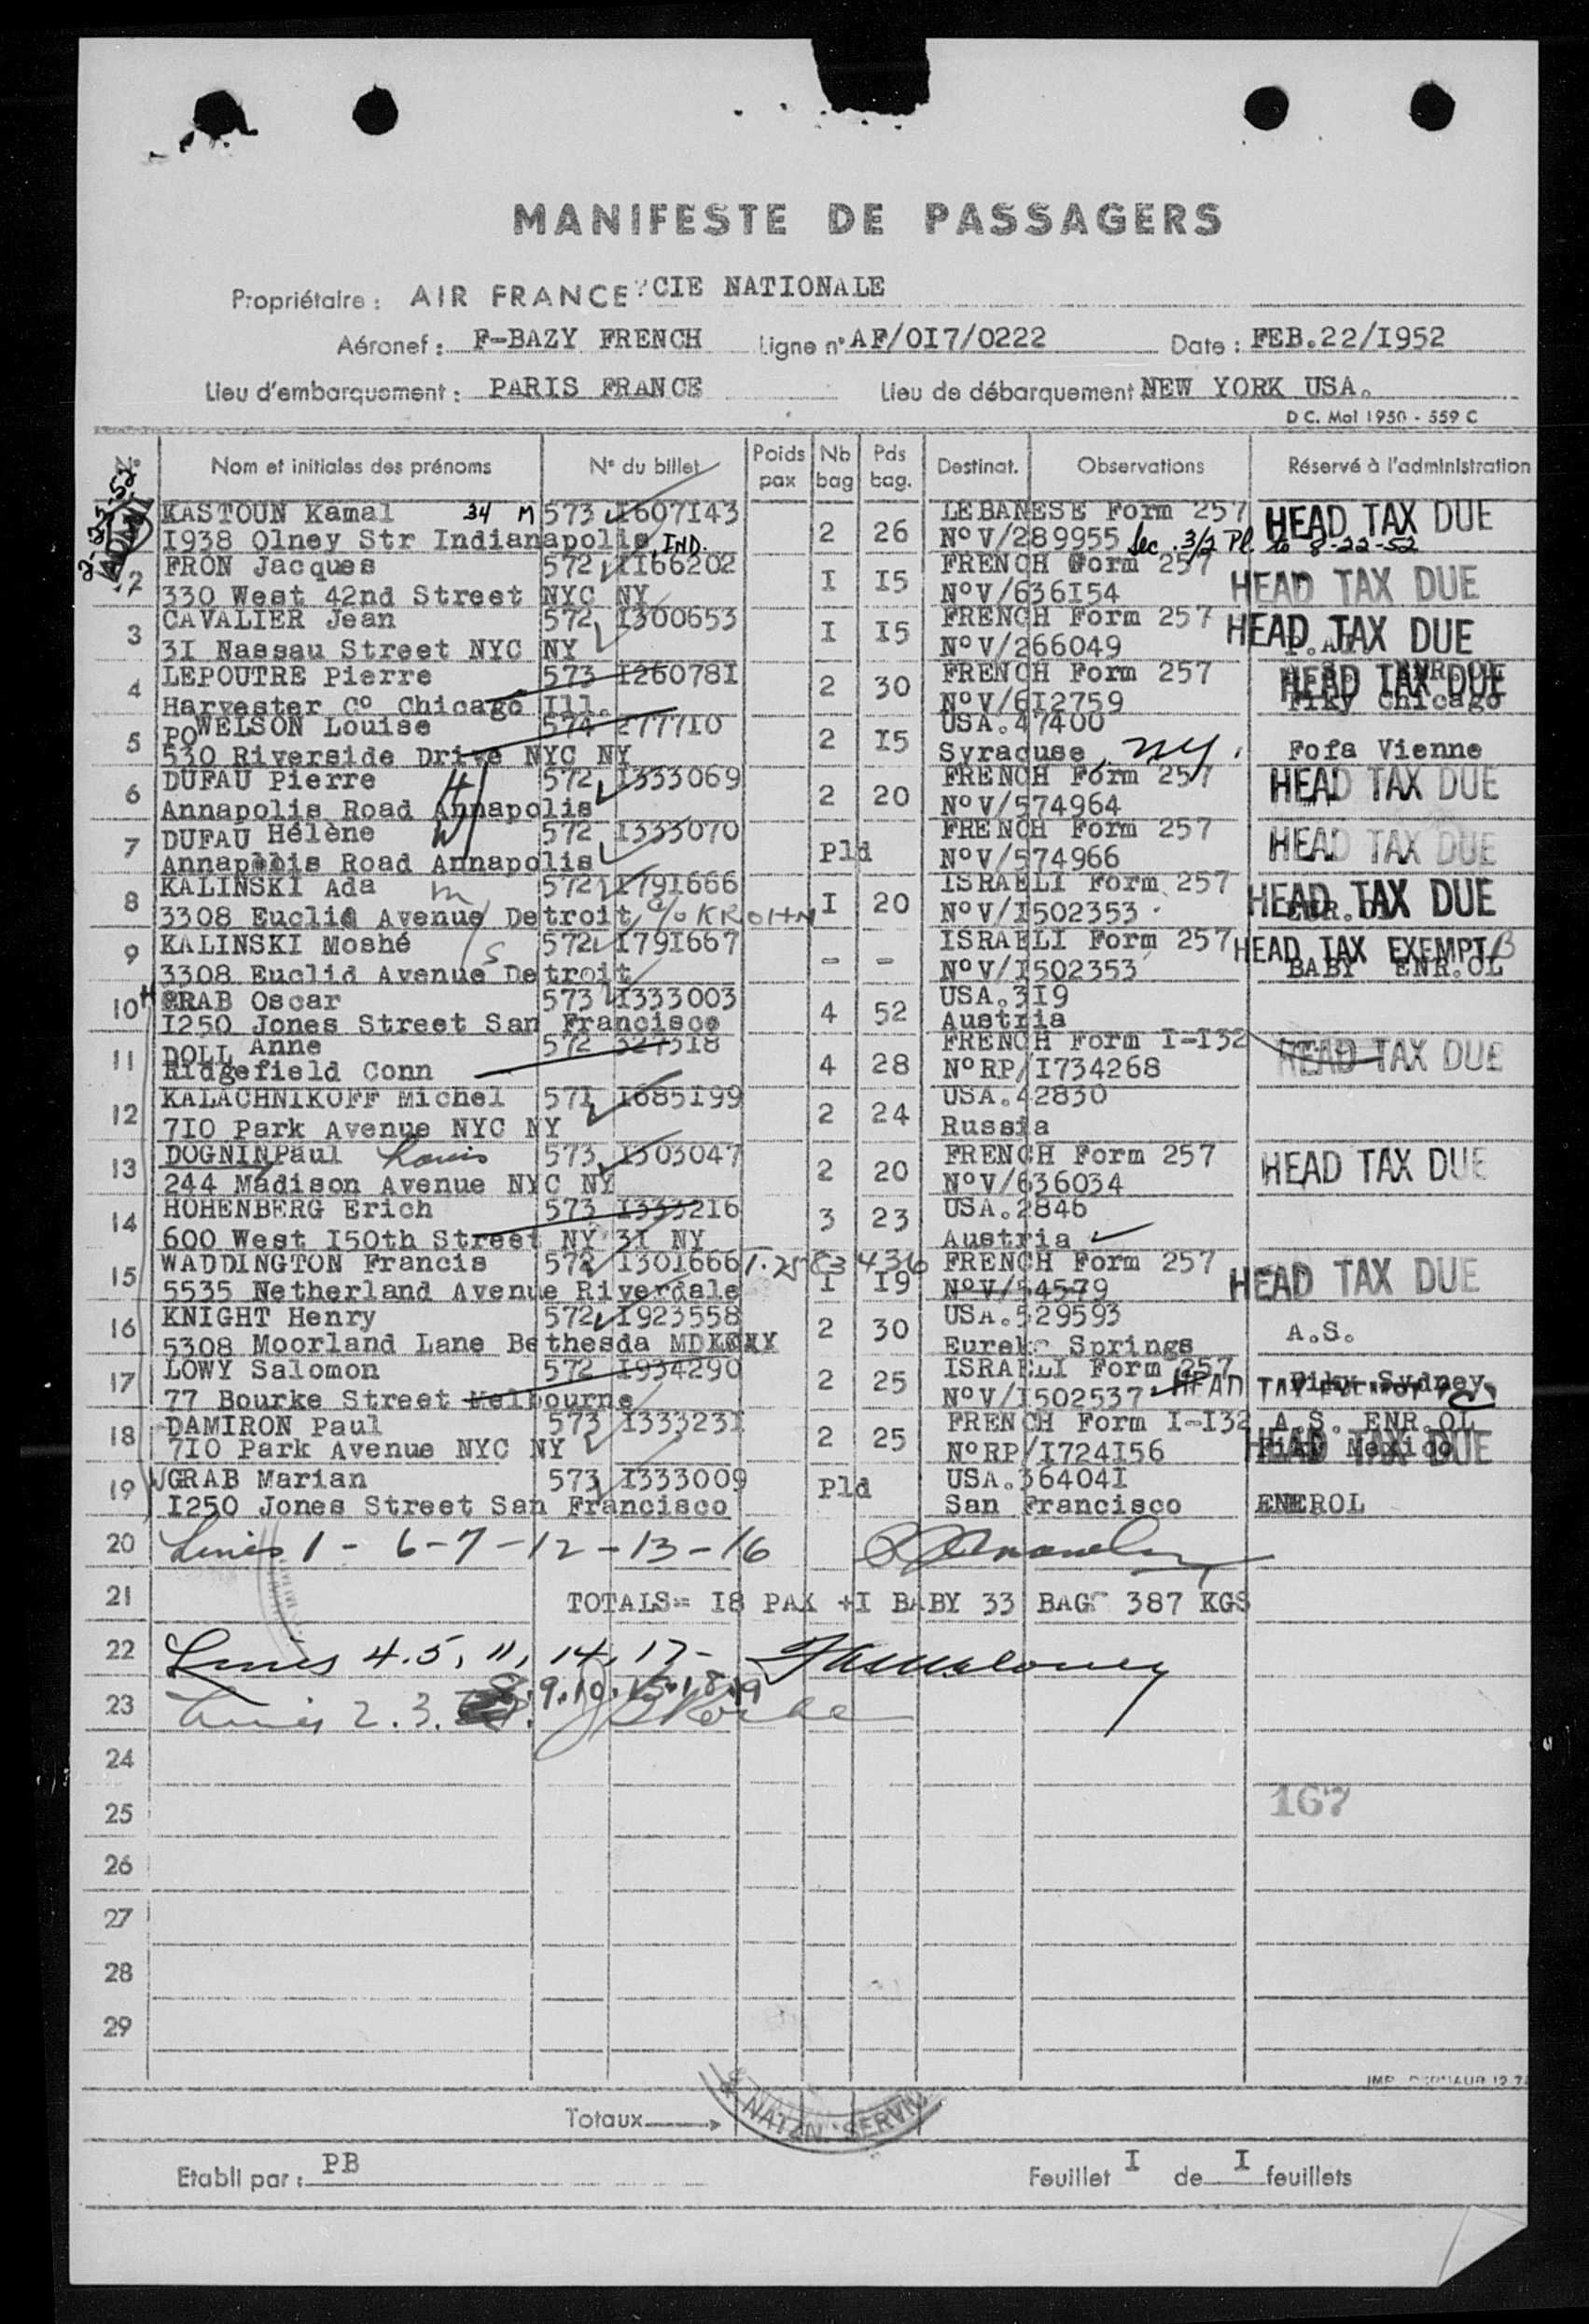 MANIFESTE DE PASSAGERS
Propriétaire : AIR FRANCE CIE NATIONALE
Aéronef : F-BAZY FRENCH Ligne n° AF/OI7/0222 Date : FEB.22/I952
Lieu d'embarquement : PARIS FRANCE Lieu de débarquement NEW YORK USA.
D C. Mai 1950 - 559 C
N° Nom et initiales des prénoms N° du billet Poids pax Nb bag Pds bag. Destinat. Observations Réservé à l'administration
2-23-52
ADMIT
KASTOUN Kamal 34 M 573 I607I43 2 26 LEBANESE Form 257 HEAD TAX DUE
I938 Olney Str Indianapolis, IND. N°V/289955 Sec. 3/2 Pl. to 8-22-52
2 FRON Jacques 572 II66202 I I5 FRENCH Form 257 HEAD TAX DUE
330 West 42nd Street NYC NY N°V/636I54
3 CAVALIER Jean 572 I300653 I I5 FRENCH Form 257 HEAD TAX DUE
3I Nassau Street NYC NY N°V/266049
4 LEPOUTRE Pierre 573 I26078I 2 30 FRENCH Form 257 HEAD TAX DUE
Harvester C° Chicago Ill. N°V/6I2759 Piky Chicago
5 POWELSON Louise 574 2777I0 2 I5 USA.47400
530 Riverside Drive NYC NY Syracuse, NY. Fofa Vienne
6 DUFAU Pierre H 572 I333069 2 20 FRENCH Form 257 HEAD TAX DUE
Annapolis Road Annapolis N°V/574964
7 DUFAU Hélène W 572 I333070 Pld FRENCH Form 257 HEAD TAX DUE
Annapolis Road Annapolis N°V/574966
8 KALINSKI Ada m 572 I79I666 I 20 ISRAELI Form 257 HEAD TAX DUE
3308 Euclid Avenue Detroit, c/o KROHN N°V/I502353 ENR.OL
9 KALINSKI Moshé S 572 I79I667 - - ISRAELI Form 257 HEAD TAX EXEMPT B
3308 Euclid Avenue Detroit N°V/I502353 BABY ENR.OL
10 H GRAB Oscar 573 I333003 4 52 USA.3I9
I250 Jones Street San Francisco Austria
11 DOLL Anne 572 3273I8 4 28 FRENCH Form I-I32 HEAD TAX DUE
Ridgefield Conn N°RP/I734268
12 KALACHNIKOFF Michel 57I I685I99 2 24 USA.42830
7I0 Park Avenue NYC NY Russia
13 DOGNIN Paul Louis 573 I303047 2 20 FRENCH Form 257 HEAD TAX DUE
244 Madison Avenue NYC NY N°V/636034
14 HOHENBERG Erich 573 I3332I6 3 23 USA.2846
600 West I50th Street NY 3I NY Austria
15 WADDINGTON Francis 572 I30I666 I I9 FRENCH Form 257 HEAD TAX DUE
5535 Netherland Avenue Riverdale N°V/54579
16 KNIGHT Henry 572 I923558 2 30 USA.529593
5308 Moorland Lane Bethesda MD Eureka Springs A.S.
17 LOWY Salomon 572 I934290 2 25 ISRAELI Form 257
77 Bourke Street Melbourne N°V/I502537 HEAD TAX Piky Sydney
18 DAMIRON Paul 573 I33323I 2 25 FRENCH Form I-I32 A.S. ENR.OL
7I0 Park Avenue NYC NY N°RP/I724I56 Piky Mexico HEAD TAX DUE
19 W GRAB Marian 573 I333009 Pld USA.36404I
I250 Jones Street San Francisco San Francisco ENEROL
20 Lines 1 - 6-7-12-13-16
21 TOTALS= I8 PAX +I BABY 33 BAGS 387 KGS
22 Lines 4.5, 11, 14, 17-
8.9.10.15.18.19
23 Lines 2.3.
24
167
25
26
27
28
29
& NATZN. SERVICE
Totaux
Etabli par : PB Feuillet I de I feuillets